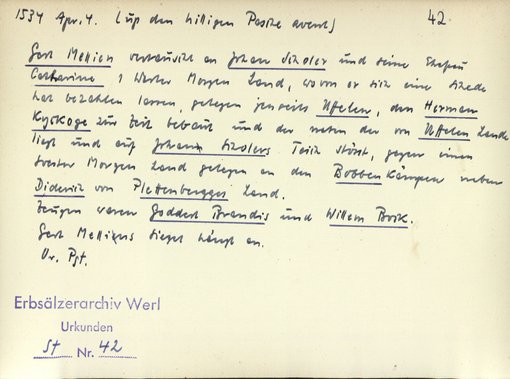 1534 Apr. 4. (up den hilligen Pasche avent) 42
Gert Mellien vertauscht an Johan Schöler und seine Ehefrau
Catharine 1 Morgen Land, wovon er sich eine
hat bezahlen lassen, gelegen jenseits Uffelen, den Herman
Kyskoge zur Zeit bebaut und der neben der von Uffelen Lande
liegt und auf Johann Schölers Teich stösst, gegen einen
Morgen Land gelegen an den Bobbenkämpen neben
Diderich von Plettenbergges Land.
Zeugen waren Goddert Brandis und Willem Brik.
Gert Melliens Siegel hängt an.
Or. Pgt.
Erbsälzerarchiv Werl
Urkunden
St Nr. 42